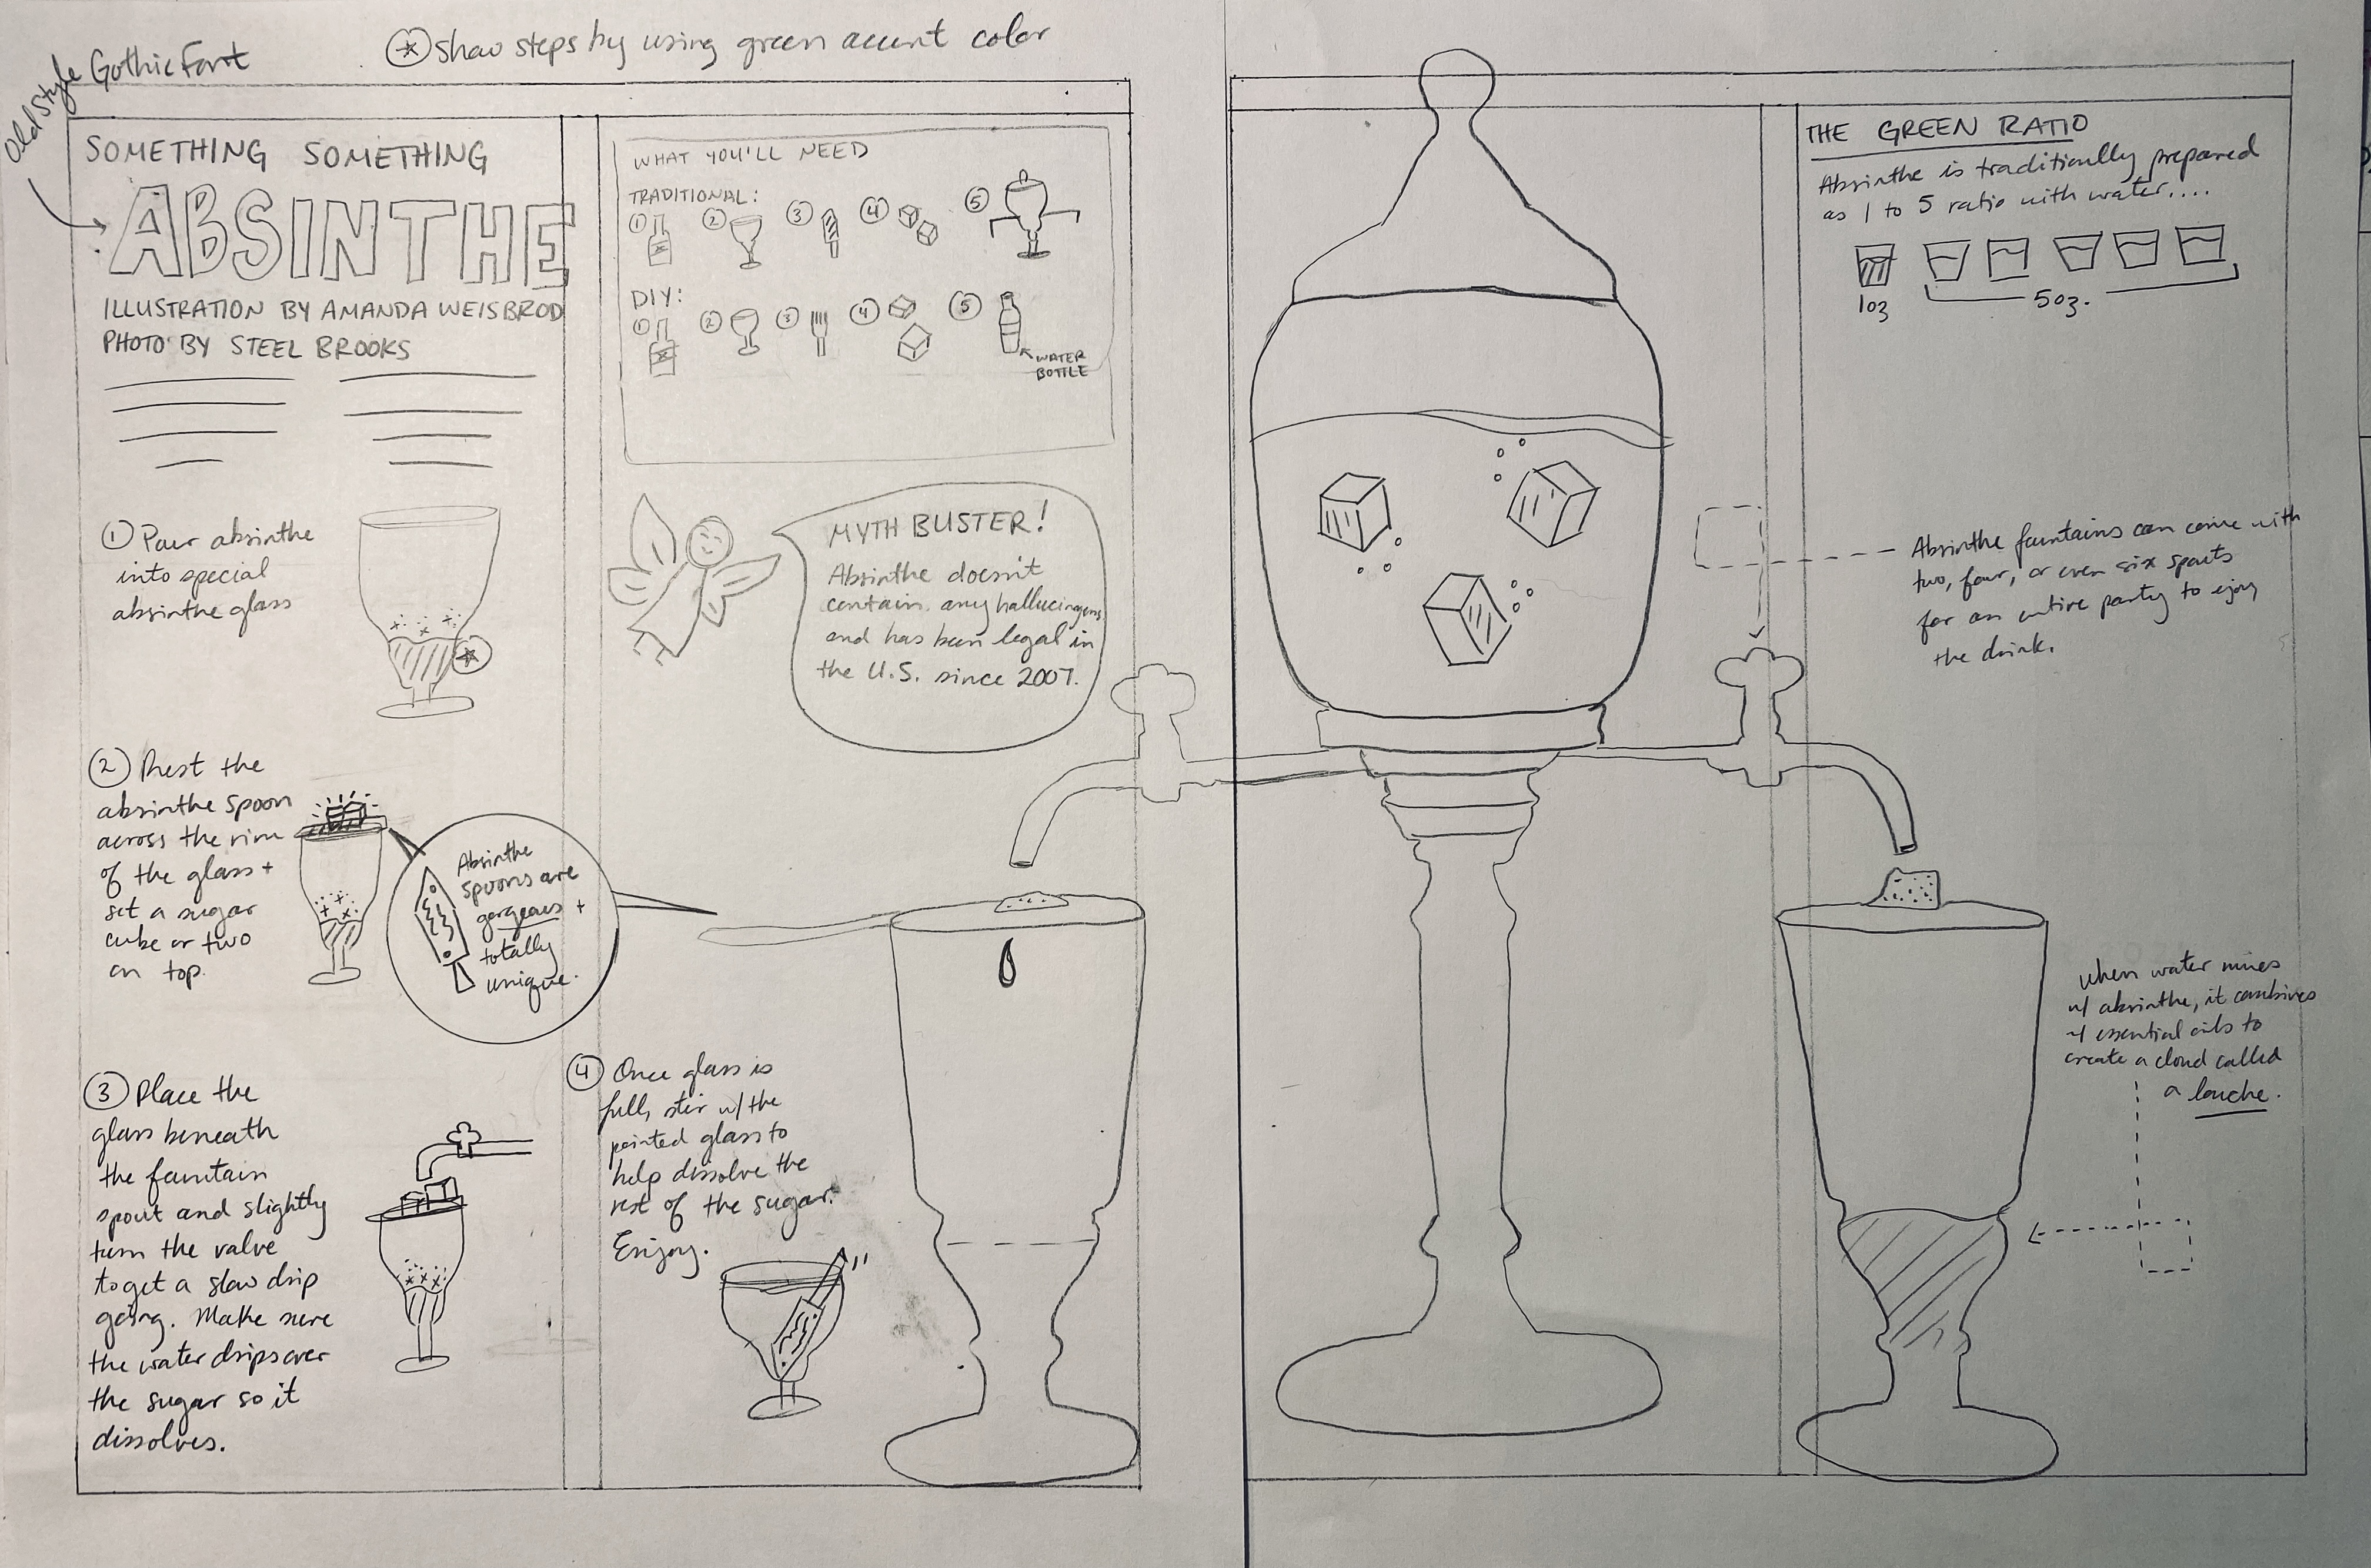 Old Style Gothic Font
* Show steps by using green accent color
SOMETHING SOMETHING
ABSINTHE
ILLUSTRATION BY AMANDA WEISBROD
PHOTO BY STEEL BROOKS
① Pour absinthe
into special
absinthe glass
*
② Rest the
absinthe spoon
across the rim
of the glass +
set a sugar
cube or two
on top.
Absinthe
spoons are
gorgeous +
totally
unique.
③ Place the
glass beneath
the fountain
spout and slightly
turn the valve
to get a slow drip
going. Make sure
the water drips over
the sugar so it
dissolves.
WHAT YOU'LL NEED
TRADITIONAL:
① ② ③ ④ ⑤
DIY:
① ② ③ ④ ⑤
WATER
BOTTLE
MYTH BUSTER!
Absinthe doesn't
contain any hallucinogens
and has been legal in
the U.S. since 2007.
④ Once glass is
full, stir w/ the
pointed glass to
help dissolve the
rest of the sugar.
Enjoy.
THE GREEN RATIO
Absinthe is traditionally prepared
as 1 to 5 ratio with water....
1oz
5oz.
Absinthe fountains can come with
two, four, or even six spouts
for an entire party to enjoy
the drink.
When water mixes
w/ absinthe, it combines
w/ essential oils to
create a cloud called
a louche.